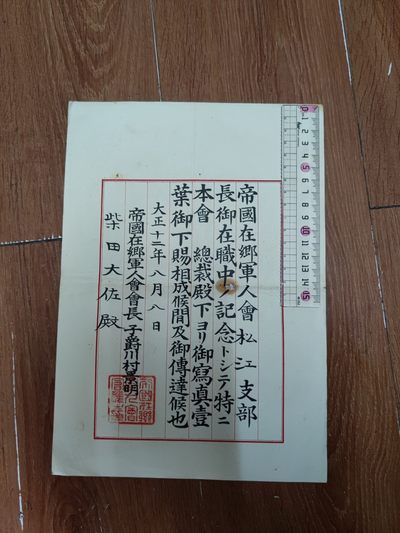 帝國在鄉軍人會松江支部
長御在職中ノ記念トシテ特ニ
本會 總裁殿下ヨリ御寫眞壹
葉御下賜相成候間及御傳達候也
大正十二年八月八日
帝國在鄉軍人會會長子爵川村景明
柴田大佐殿
1 2 3 4 5 6 7 8 9 10 11 12 13 14 15